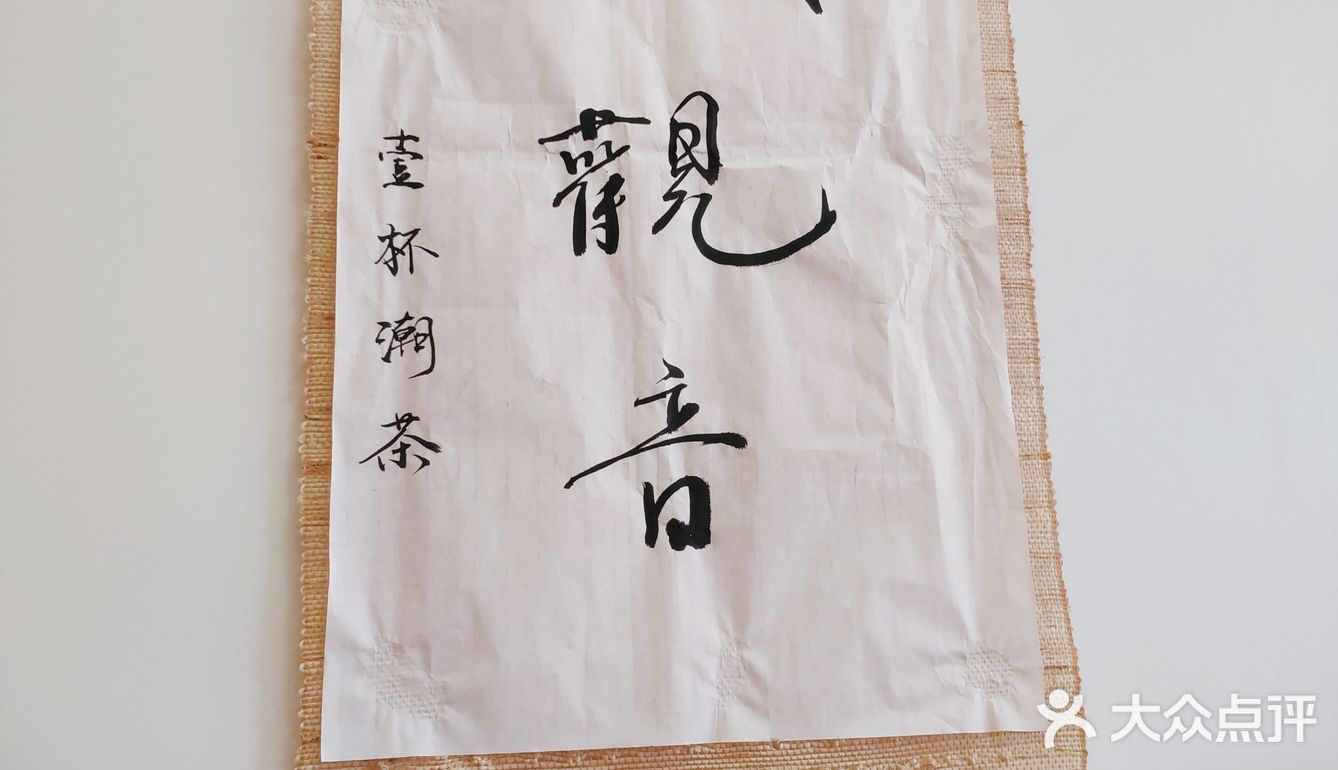 觀音
壹杯潮茶
大众点评